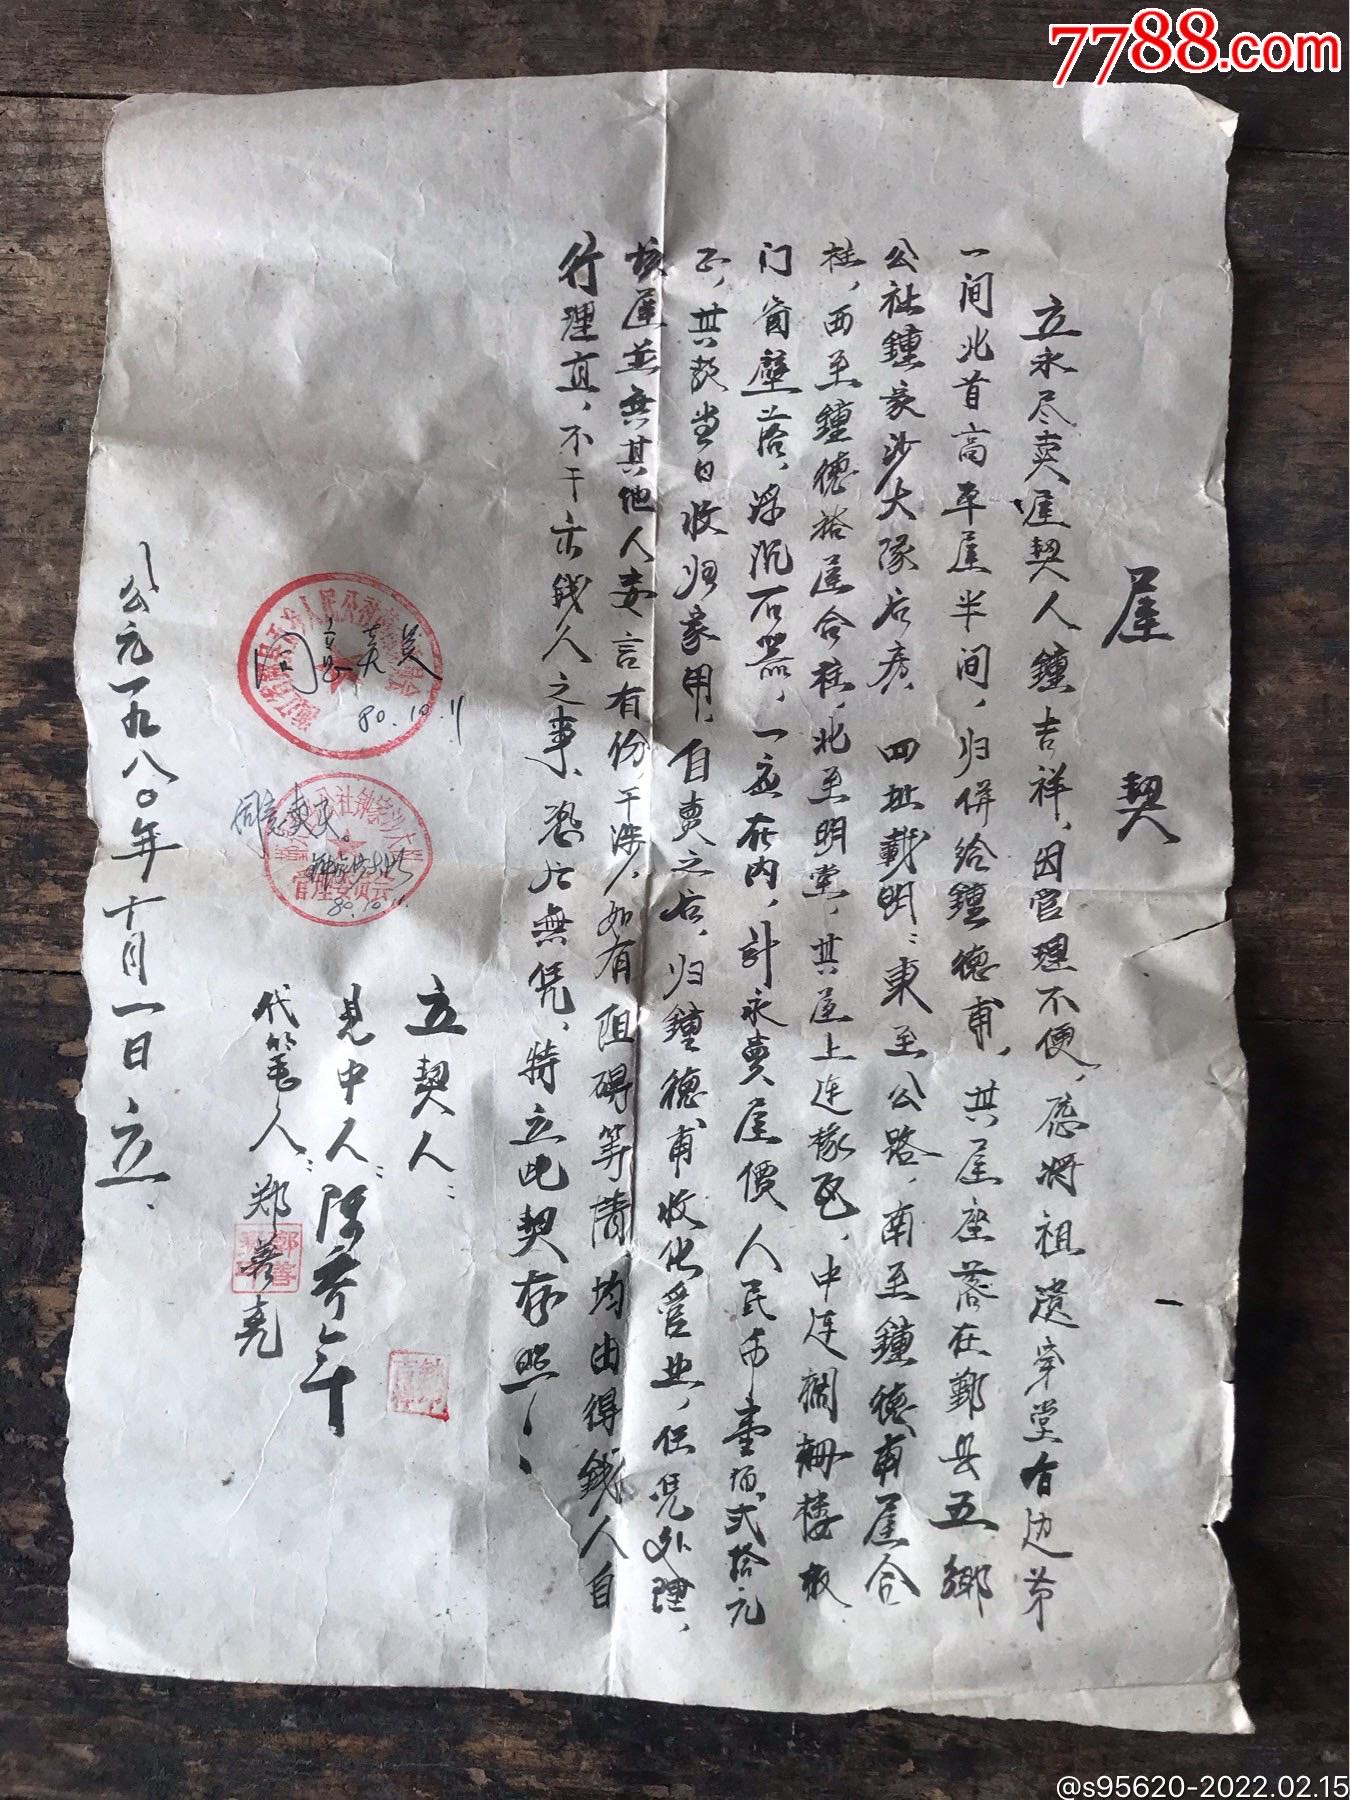 屋契
立永尽卖屋契人鍾吉祥，因管理不便，愿将祖遗牵堂有边第
一间北首高平屋半间，归併给鍾德甫，其屋座落在鄞县五鄉
公社鍾家沙大隊后房，四址載明：東至公路，南至鍾德甫屋合
柱，西至鍾德裕屋合柱，北至明堂，其屋上连椽瓦，中连楼板
门窗壁落，浮沉石器，一应在内，計永賣屋價人民币壹佰弍拾元
正，其款当日收归家用，自賣之后，归鍾德甫收化管业，任凭处理，
该屋並無其他人妄言有份干涉，如有阻碍等情，均由得钱人自
行理直，不干出钱人之事，恐后無凭，特立此契存照
立契人：
見中人：陈
代筆人：郑善尧
公元一九八〇年十月一日立
同意卖
80.10.11
同意卖买。
80.10.11.
管理委员会
7788.com
@s95620-2022.02.15